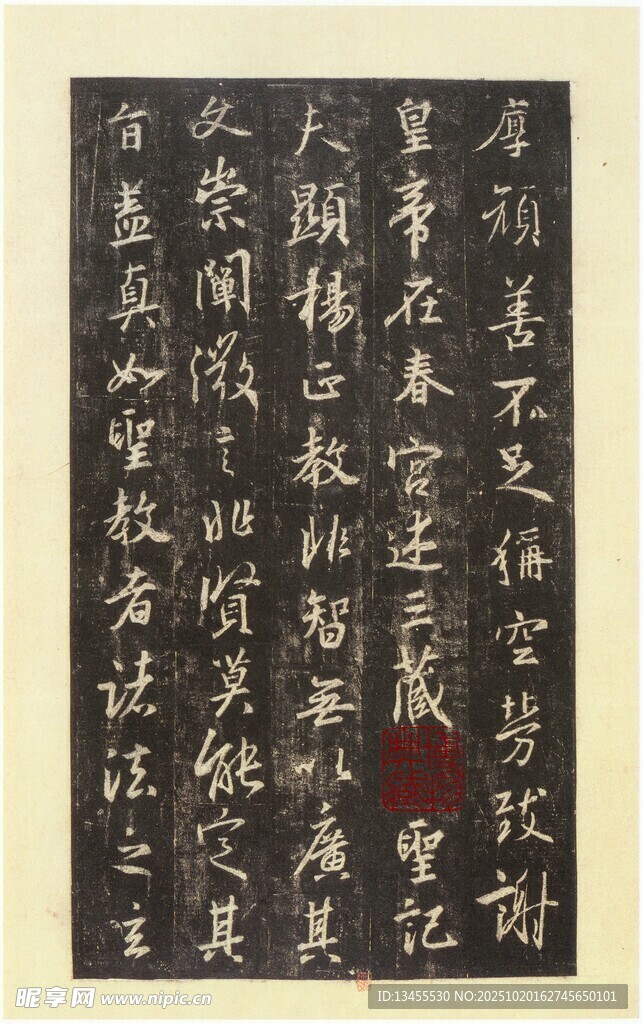 厚頋善不足稱空勞致謝
皇帝在春宮述三藏聖記
夫顯楊正教非智無以廣其
文崇闡微言非賢莫能定其
旨盖真如聖教者諸法之玄
昵享网 www.nipic.cn
ID:13455530 NO:20251020162745650101